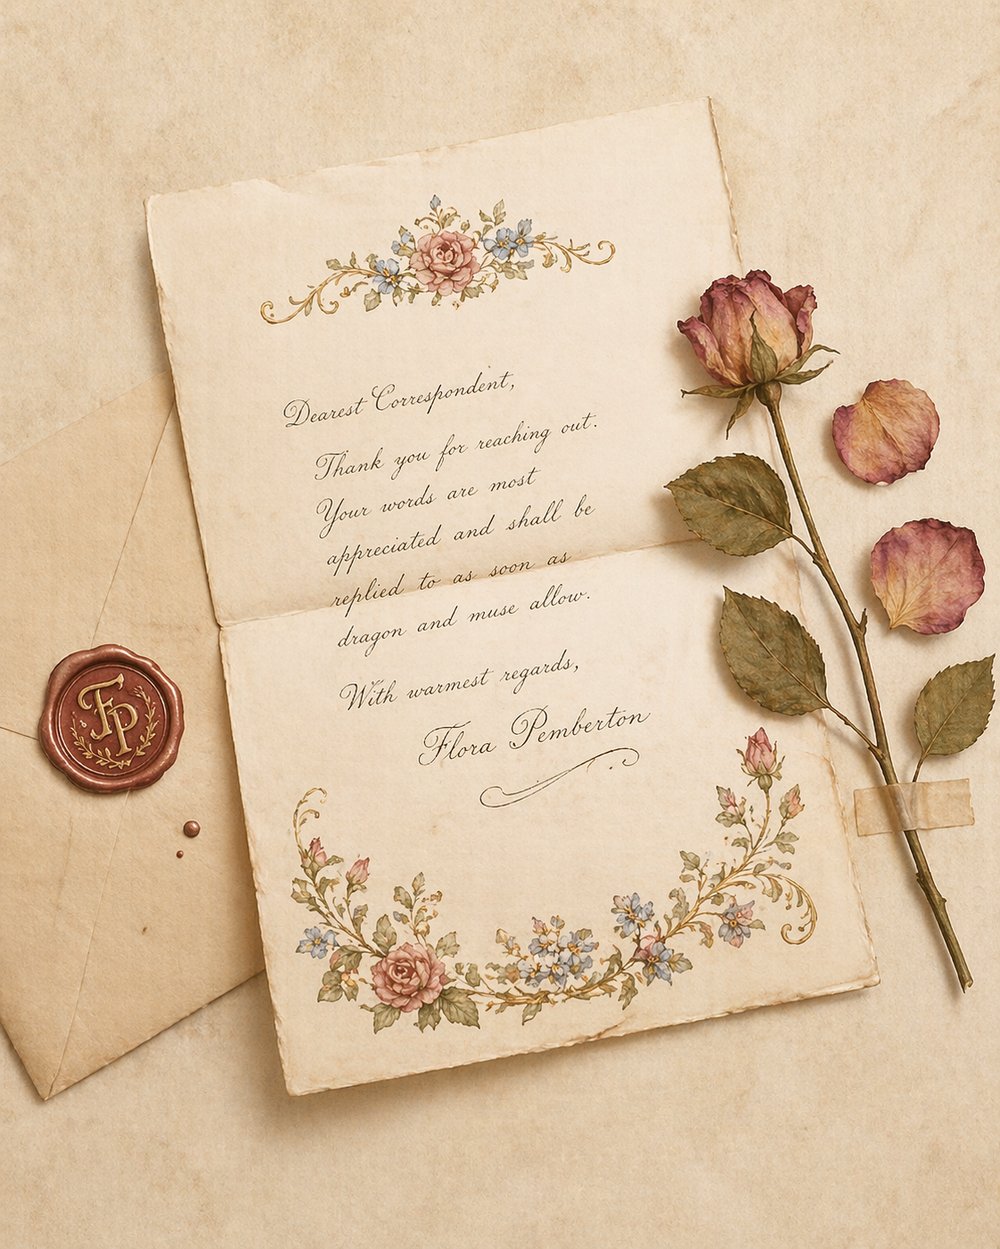 Dearest Correspondent,
Thank you for reaching out.
Your words are most
appreciated and shall be
replied to as soon as
dragon and muse allow.
With warmest regards,
Flora Pemberton
FP